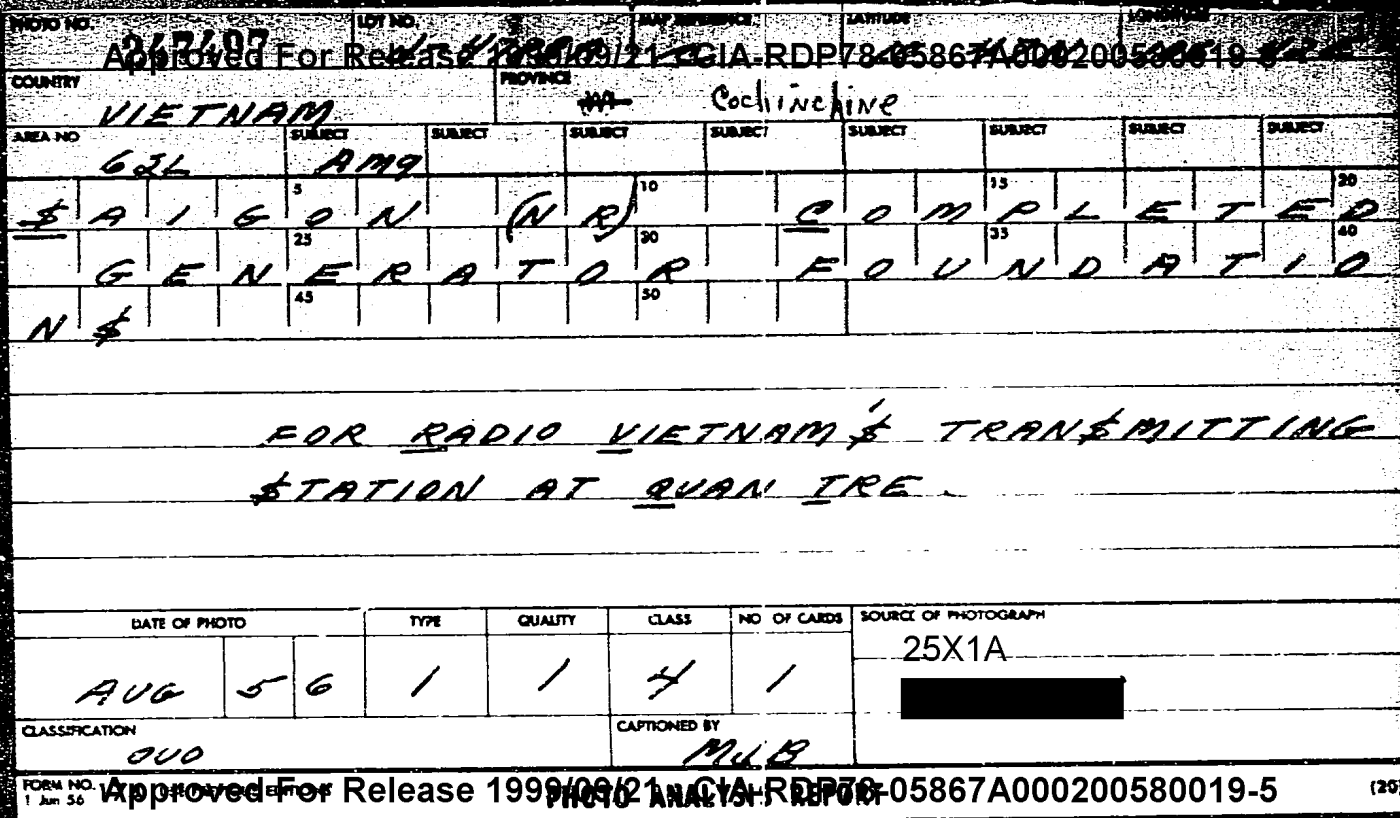 PHOTO NO. LOT NO. MAP REFERENCE LATITUDE LONGITUDE
Approved For Release 1999/09/21 : CIA-RDP78-05867A000200580019-5
COUNTRY PROVINCE
VIETNAM Cochinchine
AREA NO SUBJECT SUBJECT SUBJECT SUBJECT SUBJECT SUBJECT SUBJECT SUBJECT
5 10 15 20
$AIGON (NR) COMPLETED
25 30 35 40
GENERATOR FOUNDATIO
45 50
N$
FOR RADIO VIETNAM'$ TRAN$MITTING
$TATION AT QUAN TRE.
DATE OF PHOTO TYPE QUALITY CLASS NO OF CARDS SOURCE OF PHOTOGRAPH
25X1A
AUG 56 1 1 4 1
CLASSIFICATION CAPTIONED BY
OUO
FORM NO.
1 Jun 56
Approved For Release 1999/09/21 : CIA-RDP78-05867A000200580019-5
PHOTO ANALYSIS REPORT